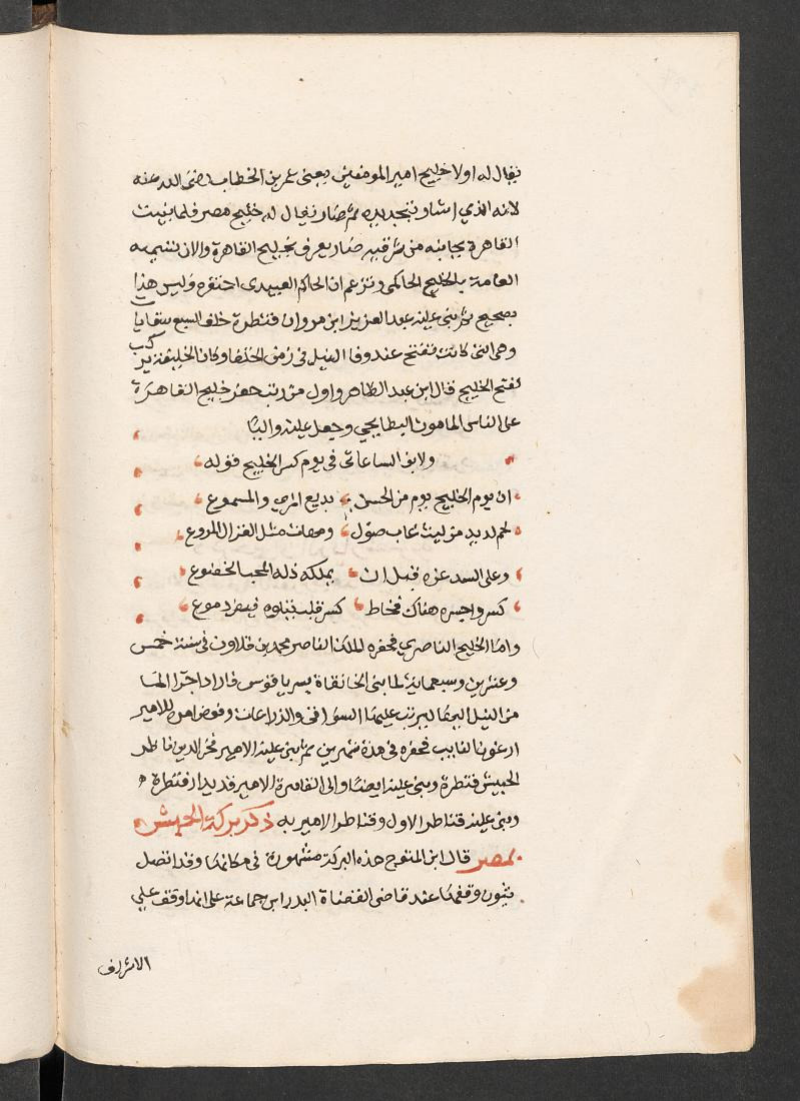 يقال له اولا خليج امير المومنين يعني عمر بن الخطاب رضى الله عنه
لانه الذي اشار بتجديده ثم صار يقال له خليج مصر فلما بنيت
القاهرة بجانبه من شرقيه صار يعرف بخليج القاهرة والان تسميه
العامة بالخليج الحاكمى وتزعم ان الحاكم العبيدى احتفره وليس هذا
بصحيح ثم بنى عليه عبد العزيز ابن مروان قنطرة خلف السبع سقايا
وهى التى كانت تفتح عند وفا النيل فى زمن الخلفا وكان الخليفة يركب
لفتح الخليج قال ابن عبد الظاهر واول من رتب حفر خليج القاهرة
على الناس المامون البطايحي وجعل عليه واليا
ولابن الساعاتى فى يوم كسر الخليج قوله
ان يوم الخليج يوم من الحسن بديع المرى والمسموع
كم لديه من ليث غاب صول ومهات مثل الغزال المروع
وعلى السد عزه قبل ان يملكه ذلة المحب الخضوع
كسروا جسره هناك فحاط كسر قلب يتلوه فيض دموع
واما الخليج الناصري فحفره الملك الناصر محمد بن قلاون فى سنة خمس
وعشرين وسبعماية لما بنى الخانقاة بسرياقوس فاراد اجرا الما
من النيل اليها ليرتب عليها السواقى والزراعات وفوض امره للامير
ارغون النايب فحفره فى مدة شهرين ثم بنى عليه الامير فخر الدين ناظر
الجيش قنطرة وبنى عليه ايضا والى القاهرة الامير قديدار قنطرة
وبنى عليه قناطر الاول وقناطر الاميريه ذكر بركة الحبش
بمصر قال ابن المتوج هذه البركة مشهورة فى مكانها وقد اتصل
ثبوت وقفها عند قاضى القضاة البدر ابن جماعة على انها وقف علي
الاشراف